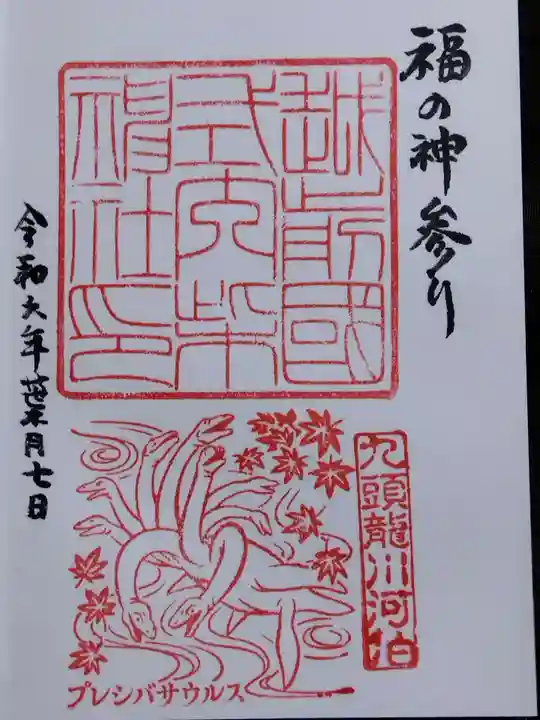 福の神参り
越前國
式内柴
神社印
令和六年葉月七日
九頭龍川河伯
プレシバサウルス